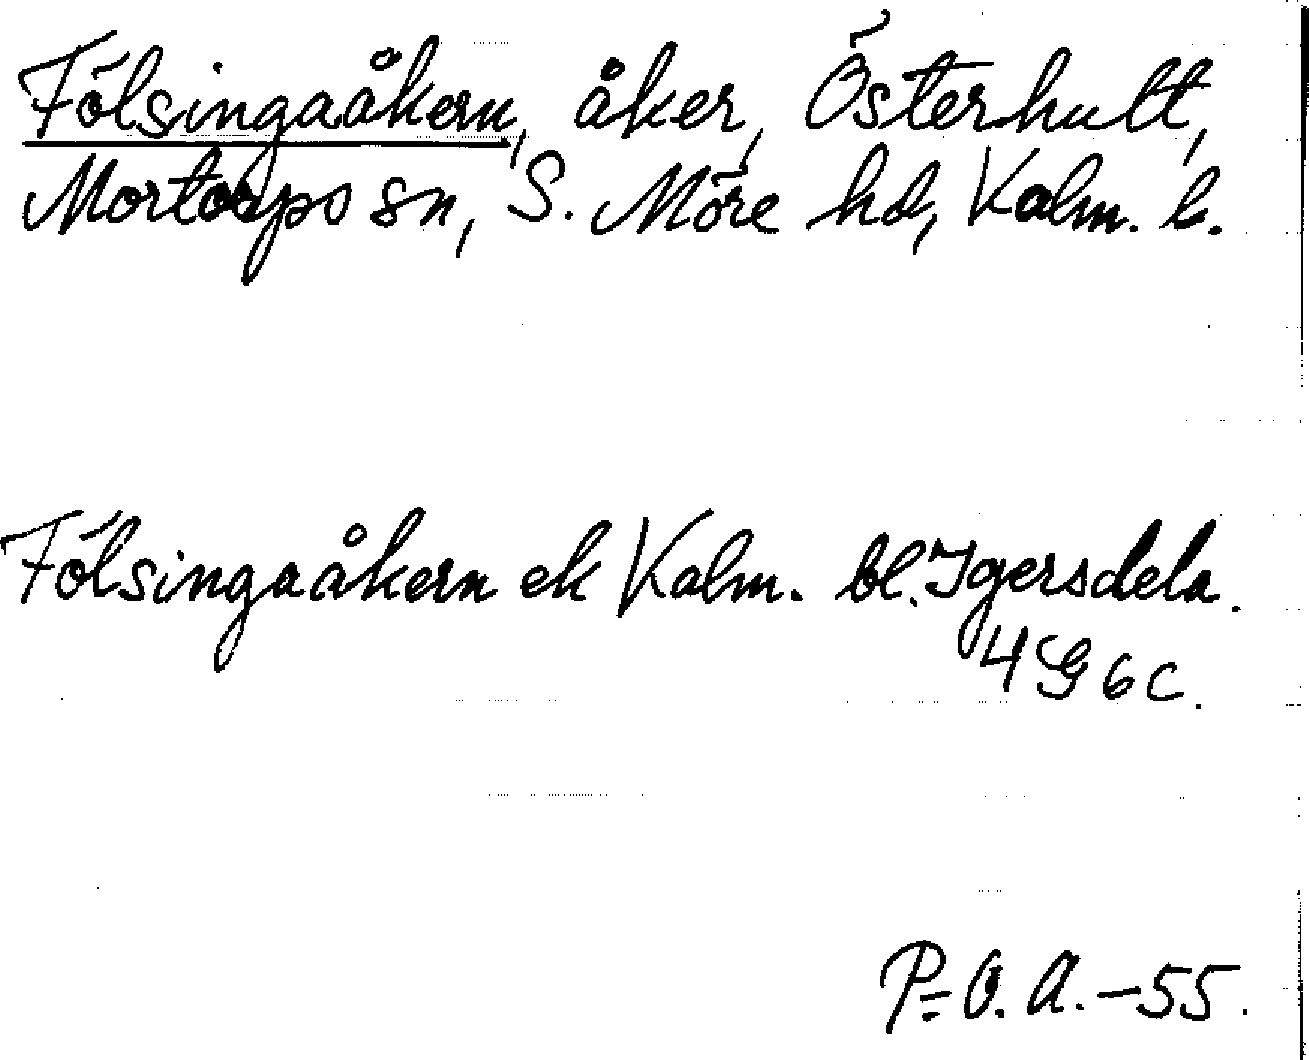 Fölsingaåkern, åker, Österhult,
Mortorps sn, S. Möre hd, Kalm. l.
Fölsingaåkern ek Kalm. bl. Igersdela.
4G6c.
P=O. A. -55.